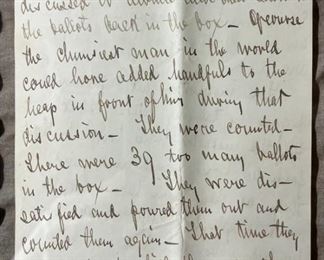 discussed or
the ballots back in the box — Of course
the clumsiest man in the world
could have added handfuls to the
heap in front of him during that
discussion — They were counted —
There were 39 too many ballots
in the box — They were dis-
satisfied and poured them out and
counted them again — That time they